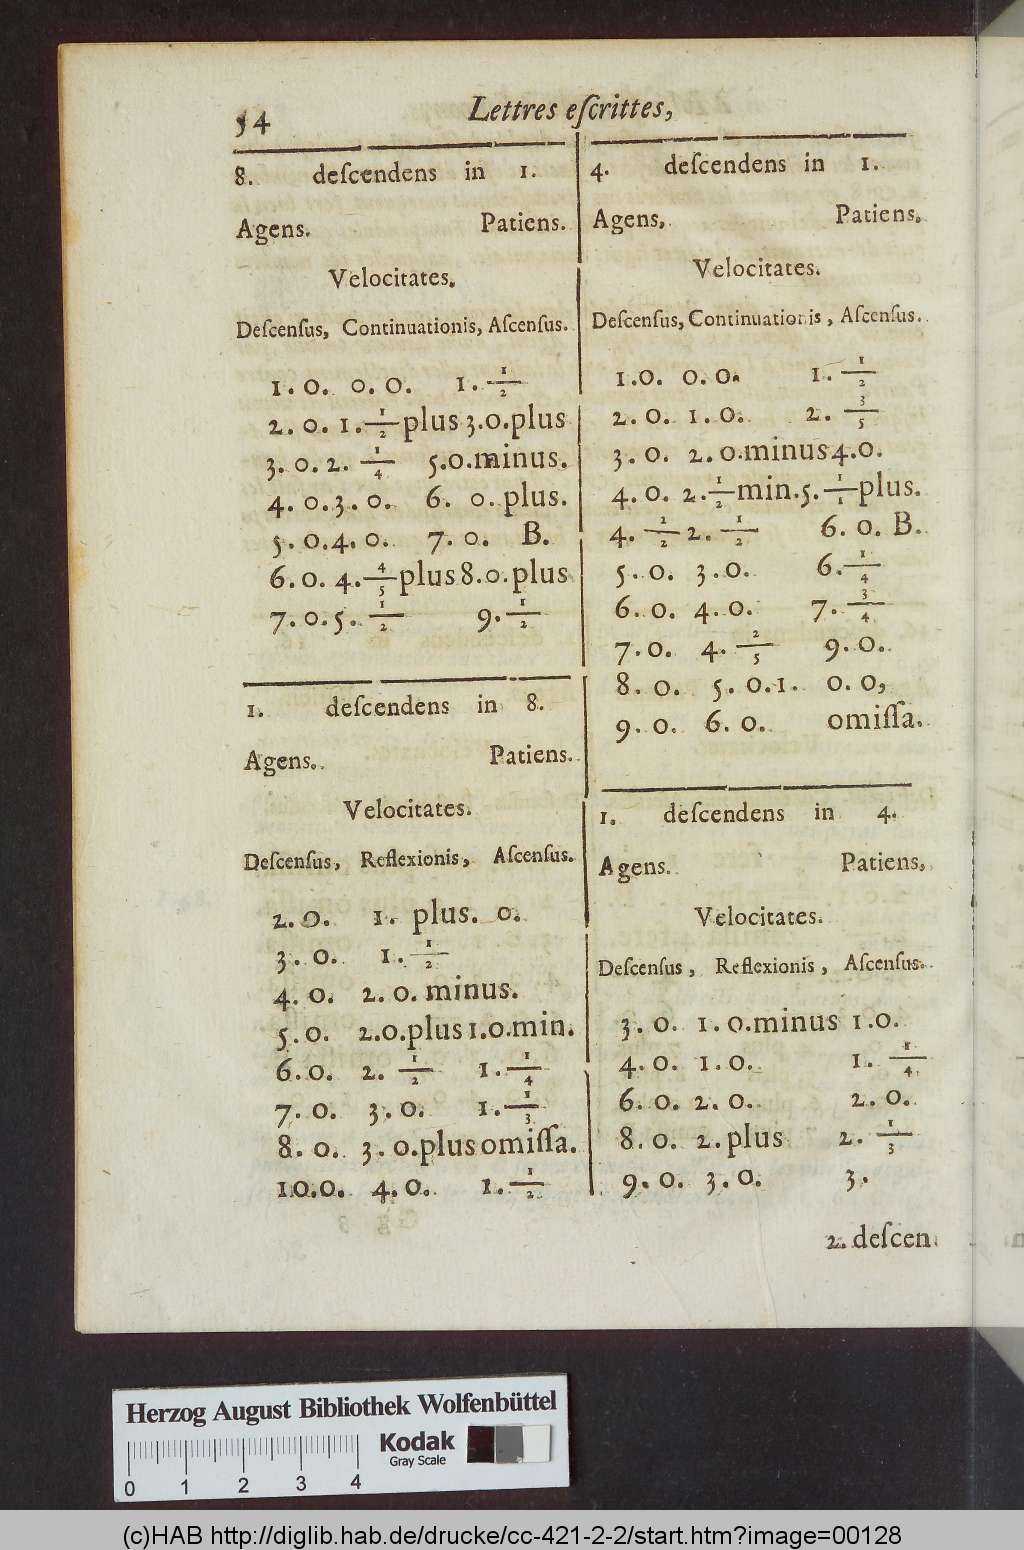 54
Lettres eſcrittes,
8. deſcendens in 1.
Agens. Patiens.
Velocitates.
Deſcenſus, Continuationis, Aſcenſus.
1. 0. 0. 0. 1. 1/2
2. 0. 1. 1/2 plus 3. 0. plus
3. 0. 2. 1/4 5. 0. minus.
4. 0. 3. 0. 6. 0. plus.
5. 0. 4. 0. 7. 0. B.
6. 0. 4. 4/5 plus 8. 0. plus
7. 0. 5. 1/2 9. 1/2
1. deſcendens in 8.
Agens. Patiens.
Velocitates.
Deſcenſus, Reflexionis, Aſcenſus.
2. 0. 1. plus. 0.
3. 0. 1. 1/2
4. 0. 2. 0. minus.
5. 0. 2. 0. plus 1. 0. min.
6. 0. 2. 1/2 1. 1/4
7. 0. 3. 0. 1. 1/3
8. 0. 3. 0. plus omiſſa.
10. 0. 4. 0. 1. 1/2
4. deſcendens in 1.
Agens, Patiens,
Velocitates.
Deſcenſus, Continuationis, Aſcenſus.
1. 0. 0. 0. 1. 1/2
2. 0. 1. 0. 2. 3/5
3. 0. 2. 0. minus 4. 0.
4. 0. 2. 1/2 min. 5. 1/1 plus.
4. 2/2 2. 1/2 6. 0. B.
5. 0. 3. 0. 6. 1/4
6. 0. 4. 0. 7. 3/4
7. 0. 4. 2/5 9. 0.
8. 0. 5. 0. 1. 0. 0,
9. 0. 6. 0. omiſſa.
1. deſcendens in 4.
Agens. Patiens,
Velocitates.
Deſcenſus, Reflexionis, Aſcenſus.
3. 0. 1. 0. minus 1. 0.
4. 0. 1. 0. 1. 1/4.
6. 0. 2. 0. 2. 0.
8. 0. 2. plus 2. 1/3
9. 0. 3. 0. 3.
2. deſcen.
Herzog August Bibliothek Wolfenbüttel
Kodak
Gray Scale
0 1 2 3 4
(c)HAB http://diglib.hab.de/drucke/cc-421-2-2/start.htm?image=00128